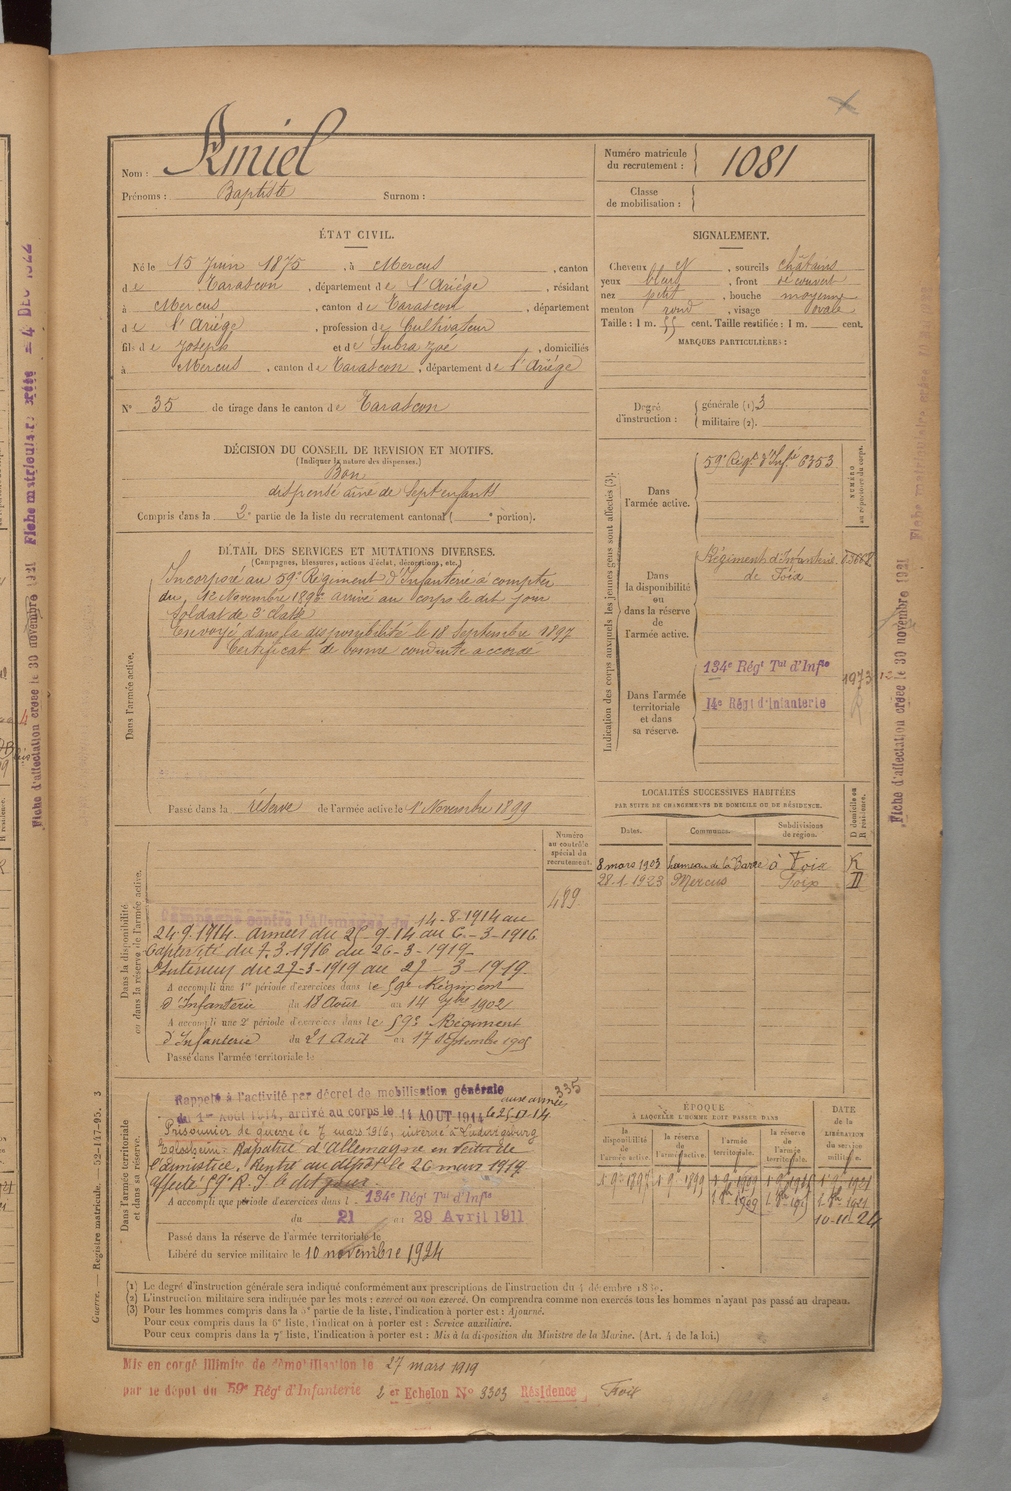 Nom : Amiel
Prénoms : Baptiste Surnom :
Numéro matricule du recrutement : 1081
Classe de mobilisation :
ÉTAT CIVIL.
Né le 15 Juin 1875, à Mercus, canton
de Tarascon, département de l'Ariége, résidant
à Mercus, canton de Tarascon, département
de l'Ariége, profession de Cultivateur
fils de Joseph et de Subra Zoé, domiciliés
à Mercus, canton de Tarascon, département de l'Ariége
N° 35 de tirage dans le canton de Tarascon
SIGNALEMENT.
Cheveux N, sourcils châtains
yeux bleus, front découvert
nez petit, bouche moyenne
menton rond, visage ovale
Taille : 1 m. 55 cent. Taille rectifiée : 1 m. cent.
MARQUES PARTICULIÈRES :
Degré d'instruction : générale (1). 3
militaire (2).
DÉCISION DU CONSEIL DE REVISION ET MOTIFS.
(Indiquer la nature des dispenses.)
Bon
dispensé aîné de sept enfants
Compris dans la 2e partie de la liste du recrutement cantonal ( e portion).
DÉTAIL DES SERVICES ET MUTATIONS DIVERSES.
(Campagnes, blessures, actions d'éclat, décorations, etc.)
Dans l'armée active.
Incorporé au 59e Régiment d'Infanterie à compter
du 12 Novembre 1896 arrivé au corps le dit jour
Soldat de 2e classe
Envoyé dans la disponibilité le 18 Septembre 1897
Certificat de bonne conduite accordé
Passé dans la réserve de l'armée active le 1er Novembre 1899
Indication des corps auxquels les jeunes gens sont affectés (3).
NUMÉRO au répertoire du corps.
Dans l'armée active.
59e Régt d'Infie 6353
Dans la disponibilité ou dans la réserve de l'armée active.
Régiment d'Infanterie
de Foix
Dans l'armée territoriale et dans sa réserve.
134e Régt Tal d'Infie
14e Régt d'Infanterie
LOCALITÉS SUCCESSIVES HABITÉES
PAR SUITE DE CHANGEMENTS DE DOMICILE OU DE RÉSIDENCE.
Dates. Communes. Subdivisions de région. D domicile ou R résidence.
8 mars 1903 hameau de la Barre à Foix R
28.1.1923 Mercus Foix D
Dans la disponibilité ou dans la réserve de l'armée active.
Numéro au contrôle spécial du recrutement.
489
Campagne contre l'Allemagne du 14-8-1914 au
24.9.1914. armées du 25-9.14 au 6-3-1916
Captivité du 7.3.1916 au 26-3-1919
Intérieur du 27-3-1919 au 27-3-1919
A accompli une 1re période d'exercices dans le 59e Régiment
d'Infanterie du 18 Août au 14 7bre 1902
A accompli une 2e période d'exercices dans le 59e Régiment
d'Infanterie du 21 Août au 17 septembre 1905
Passé dans l'armée territoriale le
Dans l'armée territoriale et dans sa réserve.
335
Rappelé à l'activité par décret de mobilisation générale
du 1er Août 1914, arrivé au corps le 14 AOUT 1914 aux armées
Prisonnier de guerre le 7 mars 1916, interné à Ludwigsburg
Rapatrié d'Allemagne en vertu de
l'armistice, Rentré au dépôt le 26 mars 1919
affecté 59e R.I. le dit jour.
A accompli une période d'exercices dans l 134e Régt Tal d'Infie
du 21 au 29 Avril 1911
Passé dans la réserve de l'armée territoriale le
Libéré du service militaire le 10 novembre 1924
ÉPOQUE
À LAQUELLE L'HOMME DOIT PASSER DANS
la disponibilité de l'armée active. la réserve de l'armée active. l'armée territoriale. la réserve de l'armée territoriale. DATE de la LIBÉRATION du service militaire.
10-11-24
(1) Le degré d'instruction générale sera indiqué conformément aux prescriptions de l'instruction du 4 décembre 1889.
(2) L'instruction militaire sera indiquée par les mots : exercé ou non exercé. On comprendra comme non exercés tous les hommes n'ayant pas passé au drapeau.
(3) Pour les hommes compris dans la 5e partie de la liste, l'indication à porter est : Ajourné.
Pour ceux compris dans la 6e liste, l'indication à porter est : Service auxiliaire.
Pour ceux compris dans la 7e liste, l'indication à porter est : Mis à la disposition du Ministre de la Marine. (Art. 4 de la loi.)
Mis en congé illimité de démobilisation le 27 mars 1919
par le dépôt du 59e Régt d'Infanterie 2 er Echelon N° 3303 Résidence Foix
Guerre. — Registre matricule. — 52-147-95. 3
Fiche d'affectation créée le 30 novembre 1921
Fiche matriculaire créée
Fiche d'affectation créée le 30 novembre 1921
Fiche matriculaire créée le 4 DEC 1922